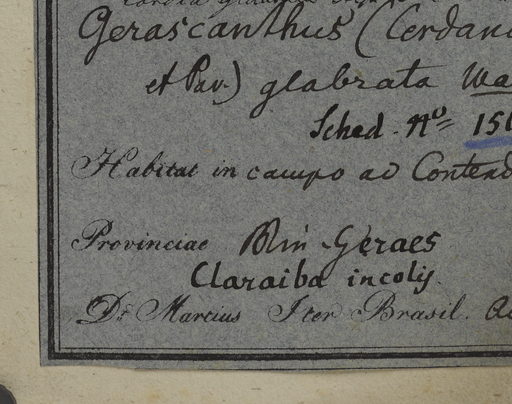 Gerascanthus (Cerdana
et Pav.) glabrata
Sched. No 151
Habitat in campo ad Contend
Provinciae Min. Geraes
Claraiba incolis.
Dr. Martius Iter Brasil.